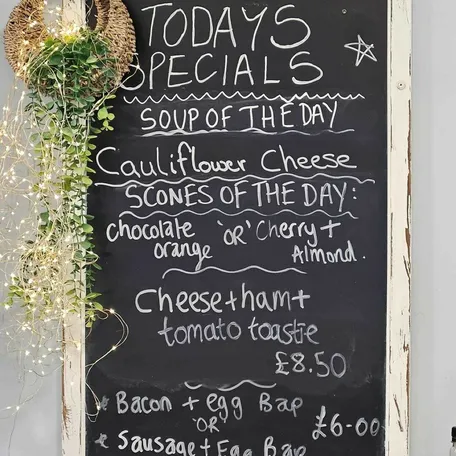 TODAYS
SPECIALS
SOUP OF THE DAY
Cauliflower Cheese
SCONES OF THE DAY:
chocolate orange 'OR' Cherry + Almond.
Cheese + ham +
tomato toastie
£8.50
* Bacon + egg Bap
'OR'
£6-00
* Sausage + Egg Bap